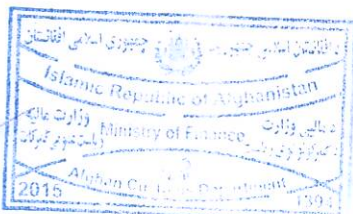 جمهوری اسلامی افغانستان
د افغانستان اسلامی جمهوریت
Islamic Republic of Afghanistan
وزارت مالیه
Ministry of Finance
د مالیې وزارت
Afghan Customs Department
2015
1394